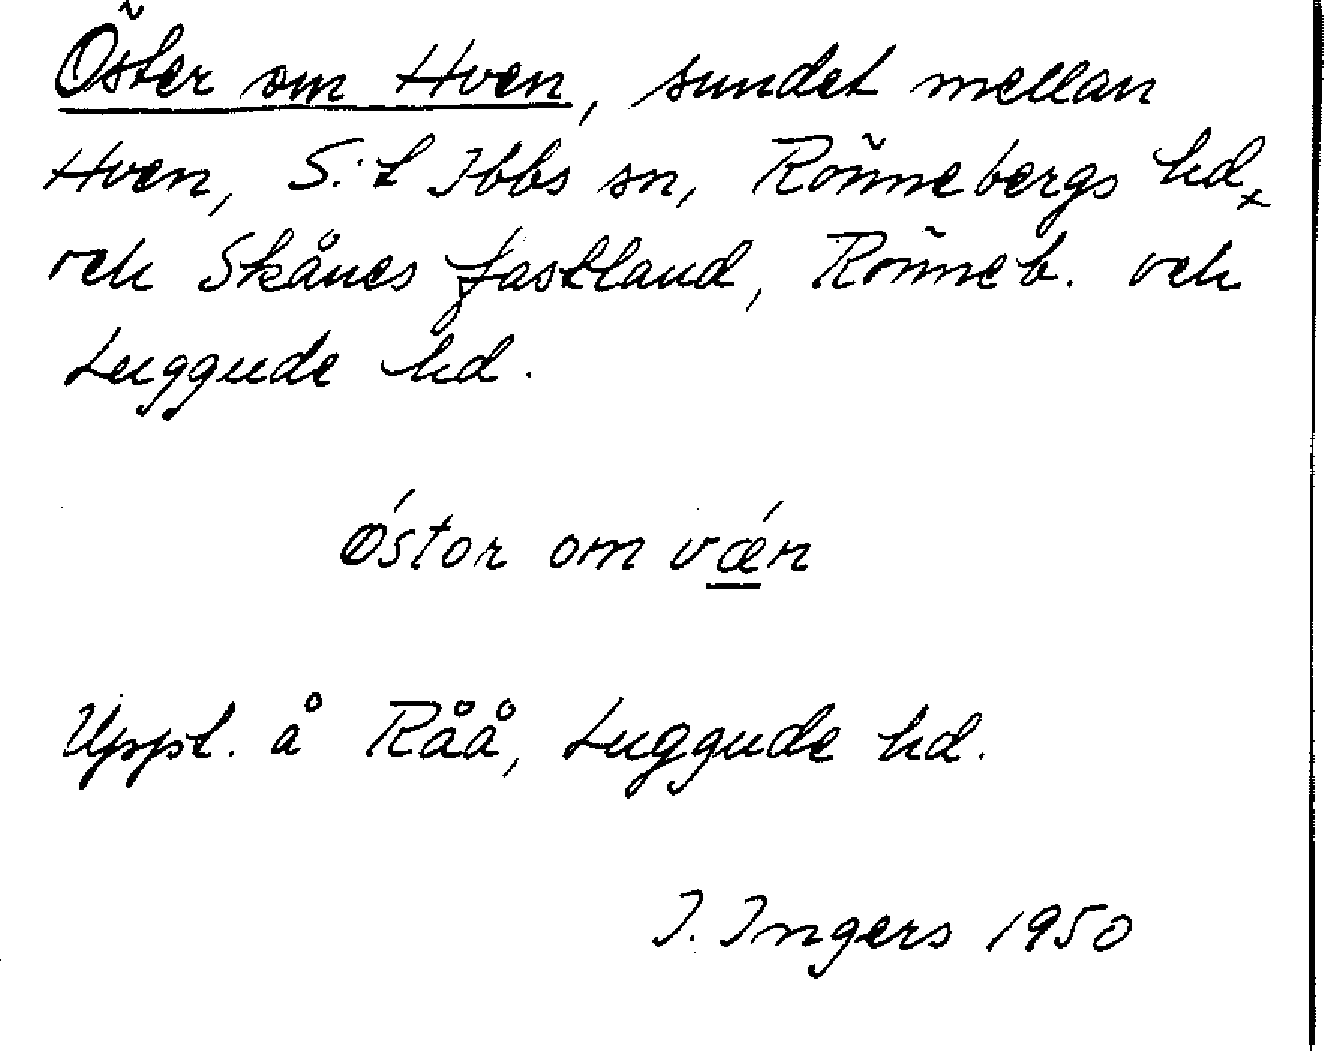 Öster om Hven, sundet mellan
Hven, S:t Ibbs sn, Rönnebergs hd,
och Skånes fastland, Rönneb. och
Luggude hd.
ǿstor om vǽn
Uppt. å Råå, Luggude hd.
I. Ingers 1950